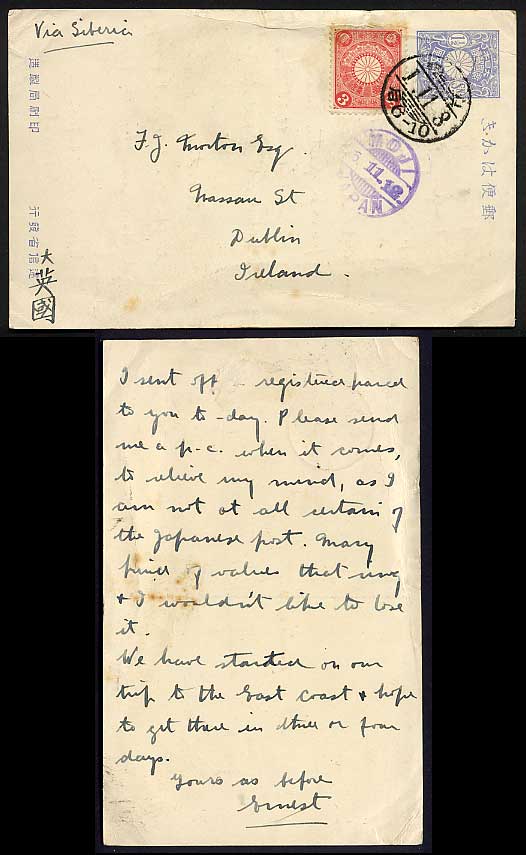 Via Siberia
造製局刷印
行發省信遞
大英國
きかは便郵
3
3
MOJI
5.11.12
JAPAN
F. J. Morton Esq.
Nassau St
Dublin
Ireland.
I sent off a registered parcel
to you to-day. Please send
me a p.c. when it comes,
to relieve my mind, as I
am not at all certain of
the Japanese post. Mary
values that
& I wouldn't like to lose
it.
We have started on our
trip to the East coast & hope
to get there in three or four
days.
Yours as before
Ernest